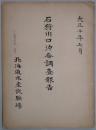 大正十年七月
石狩川口沿岸調査報告
北海道水産試験場